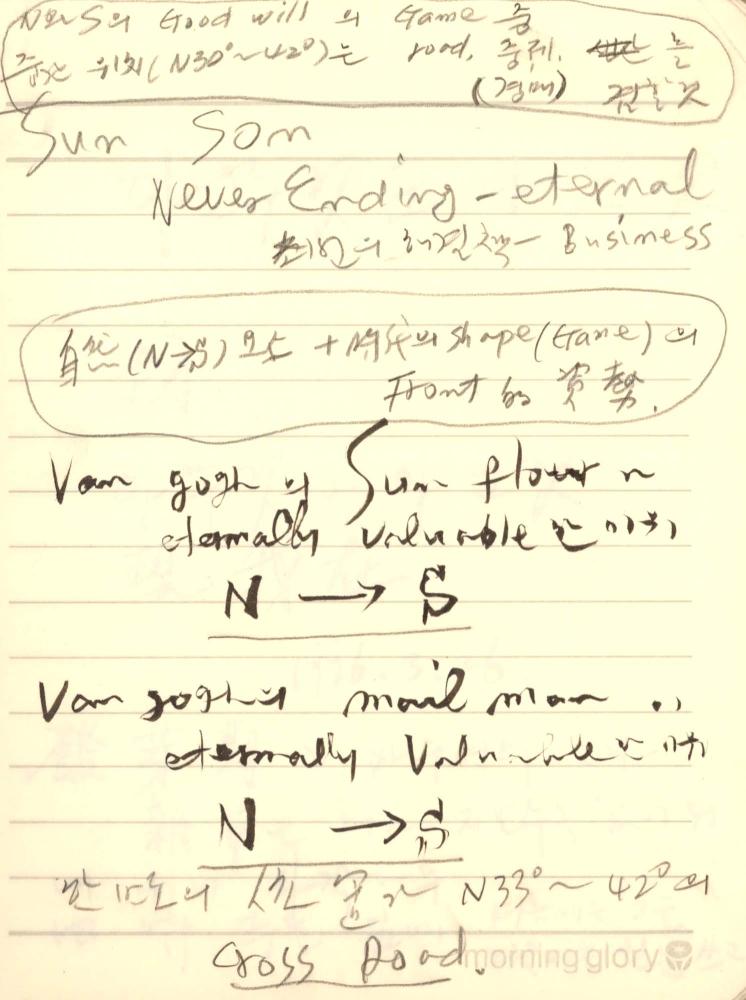 N와 S의 Good will 의 Game 중
위치(N30°~42°)는 road. 중계. 를
(경매) 겸할 것
Sun Son
Never Ending - eternal
의 해결책- Business
自然(N→) + 時代의 shape(Game)의
Front 的 資勢.
Van gogh의 Sun flower
eternally valuable 한
N → S
Van gogh의 mail man
eternally Valuable
N → S
한반도의 N33°~42°의
Cross Road.
morning glory